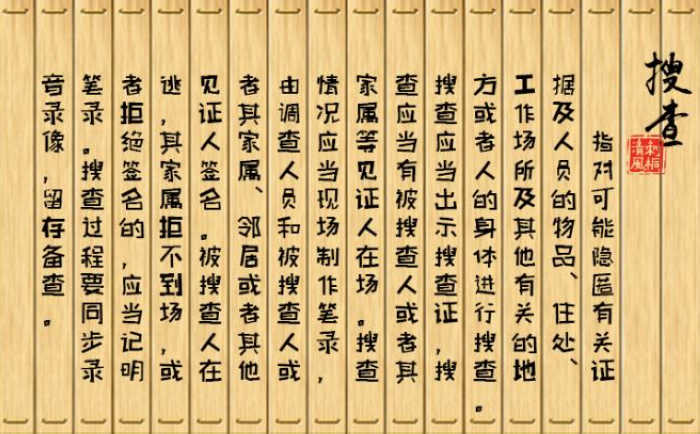 搜查
刺桐
清風
指对可能隐匿有关证
据及人员的物品、住处、
工作场所及其他有关的地
方或者人的身体进行搜查。
搜查应当出示搜查证，搜
查应当有被搜查人或者其
家属等见证人在场。搜查
情况应当现场制作笔录，
由调查人员和被搜查人或
者其家属、邻居或者其他
见证人签名。被搜查人在
逃，其家属拒不到场，或
者拒绝签名的，应当记明
笔录。搜查过程要同步录
音录像，留存备查。